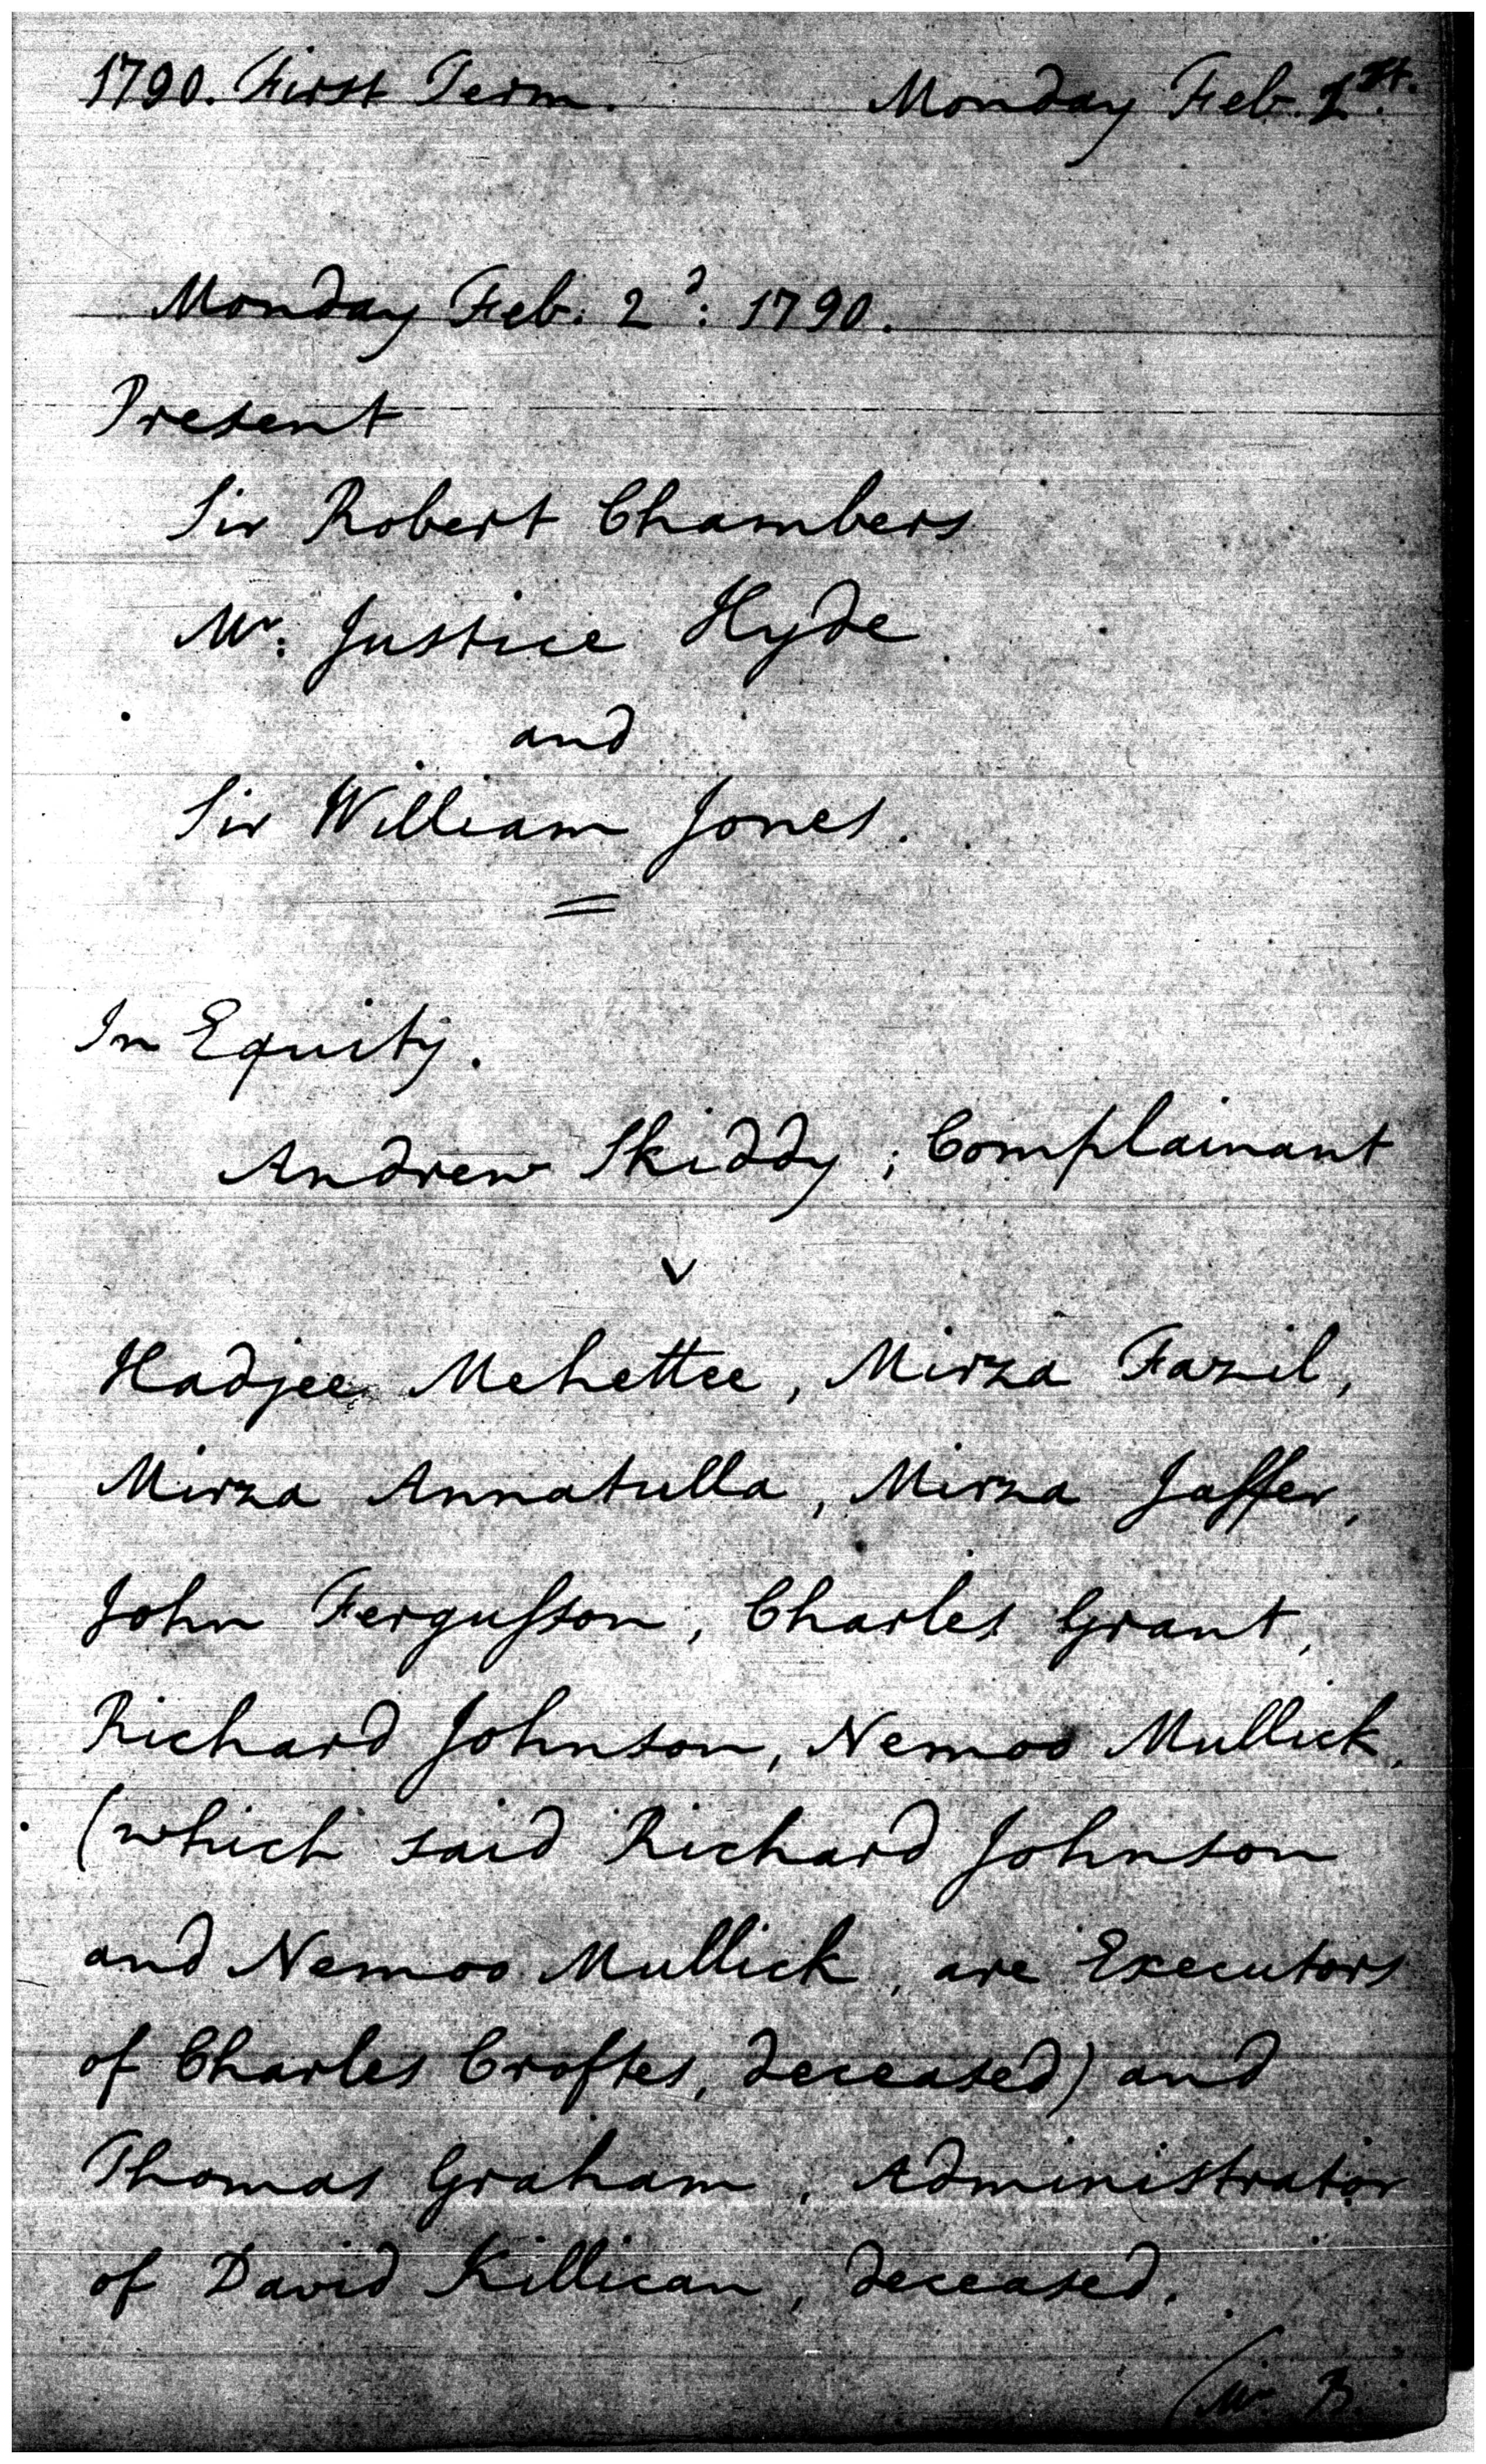 1790. First Term. Monday Feb. 1st.
Monday Feb: 2d: 1790.
Present
Sir Robert Chambers
Mr: Justice Hyde
and
Sir William Jones.
In Equity.
Andrew Skiddy; Complainant
v
Hadjee Mehettee, Mirza Fazil,
Mirza Annatulla, Mirza Jaffer,
John Fergusson, Charles Grant,
Richard Johnson, Nemoo Mullick,
(which said Richard Johnson
and Nemoo Mullick, are Executors
of Charles Croftes, deceased) and
Thomas Graham, Administrator
of David Killican, deceased.
(Mr. B.